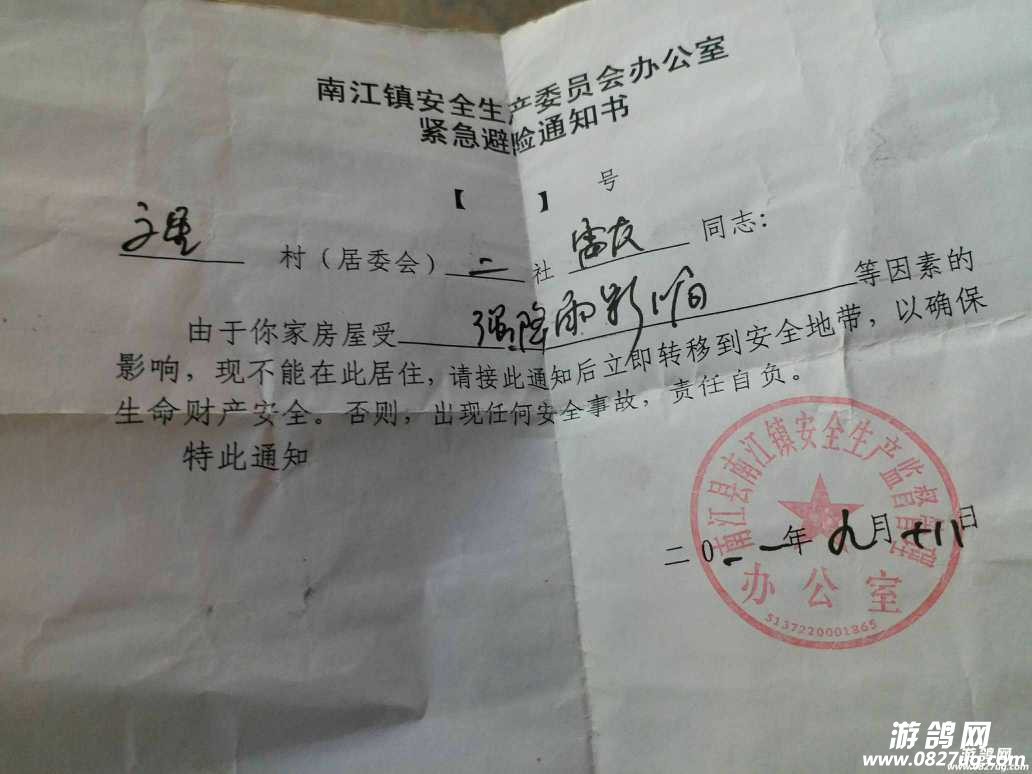 南江镇安全生产委员会办公室
紧急避险通知书
【 】 号
文星 村（居委会）二社 雷友 同志：
由于你家房屋受 强降雨影响 等因素的
影响，现不能在此居住，请接此通知后立即转移到安全地带，以确保
生命财产安全。否则，出现任何安全事故，责任自负。
特此通知
南江县南江镇安全生产监督管理
二0一一年九月十八日
办公室
5137220001865
游鸽网
www.0827ug.com
游鸽网
www.0827ug.com